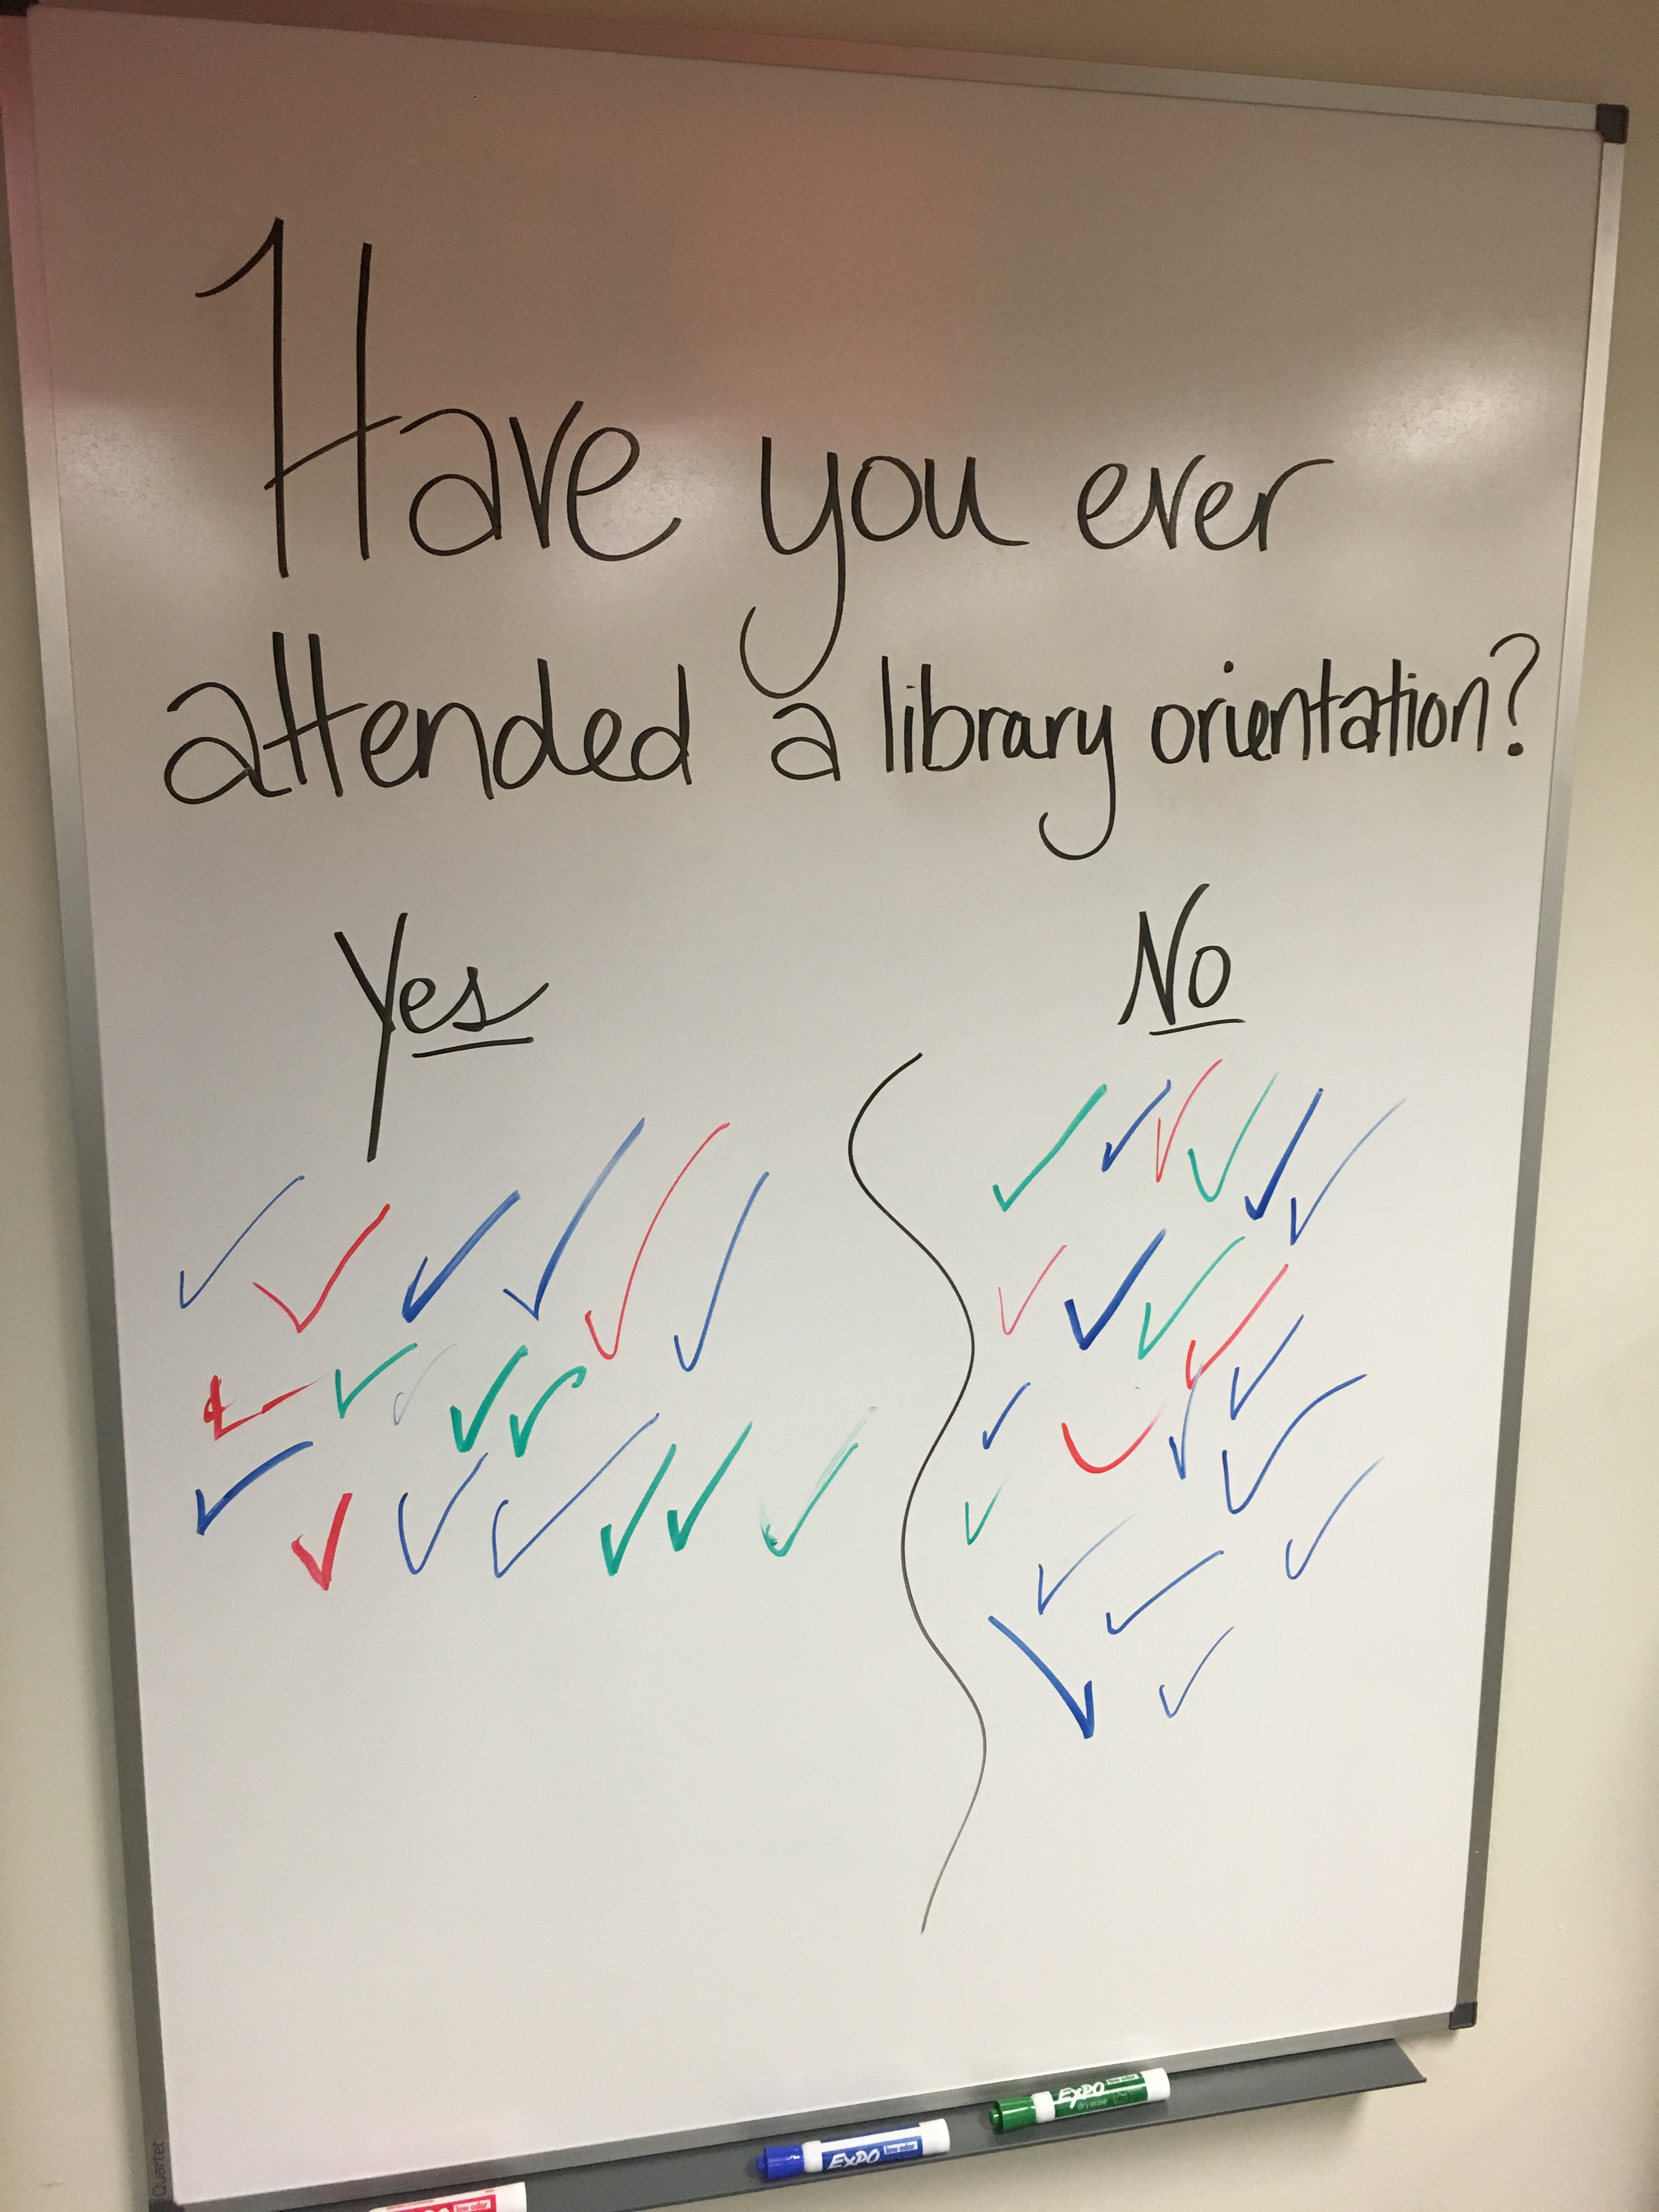 Have you ever
attended a library orientation?
Yes
No
Quartet
EXPO low odor
dry erase
EXPO low odor
low odor